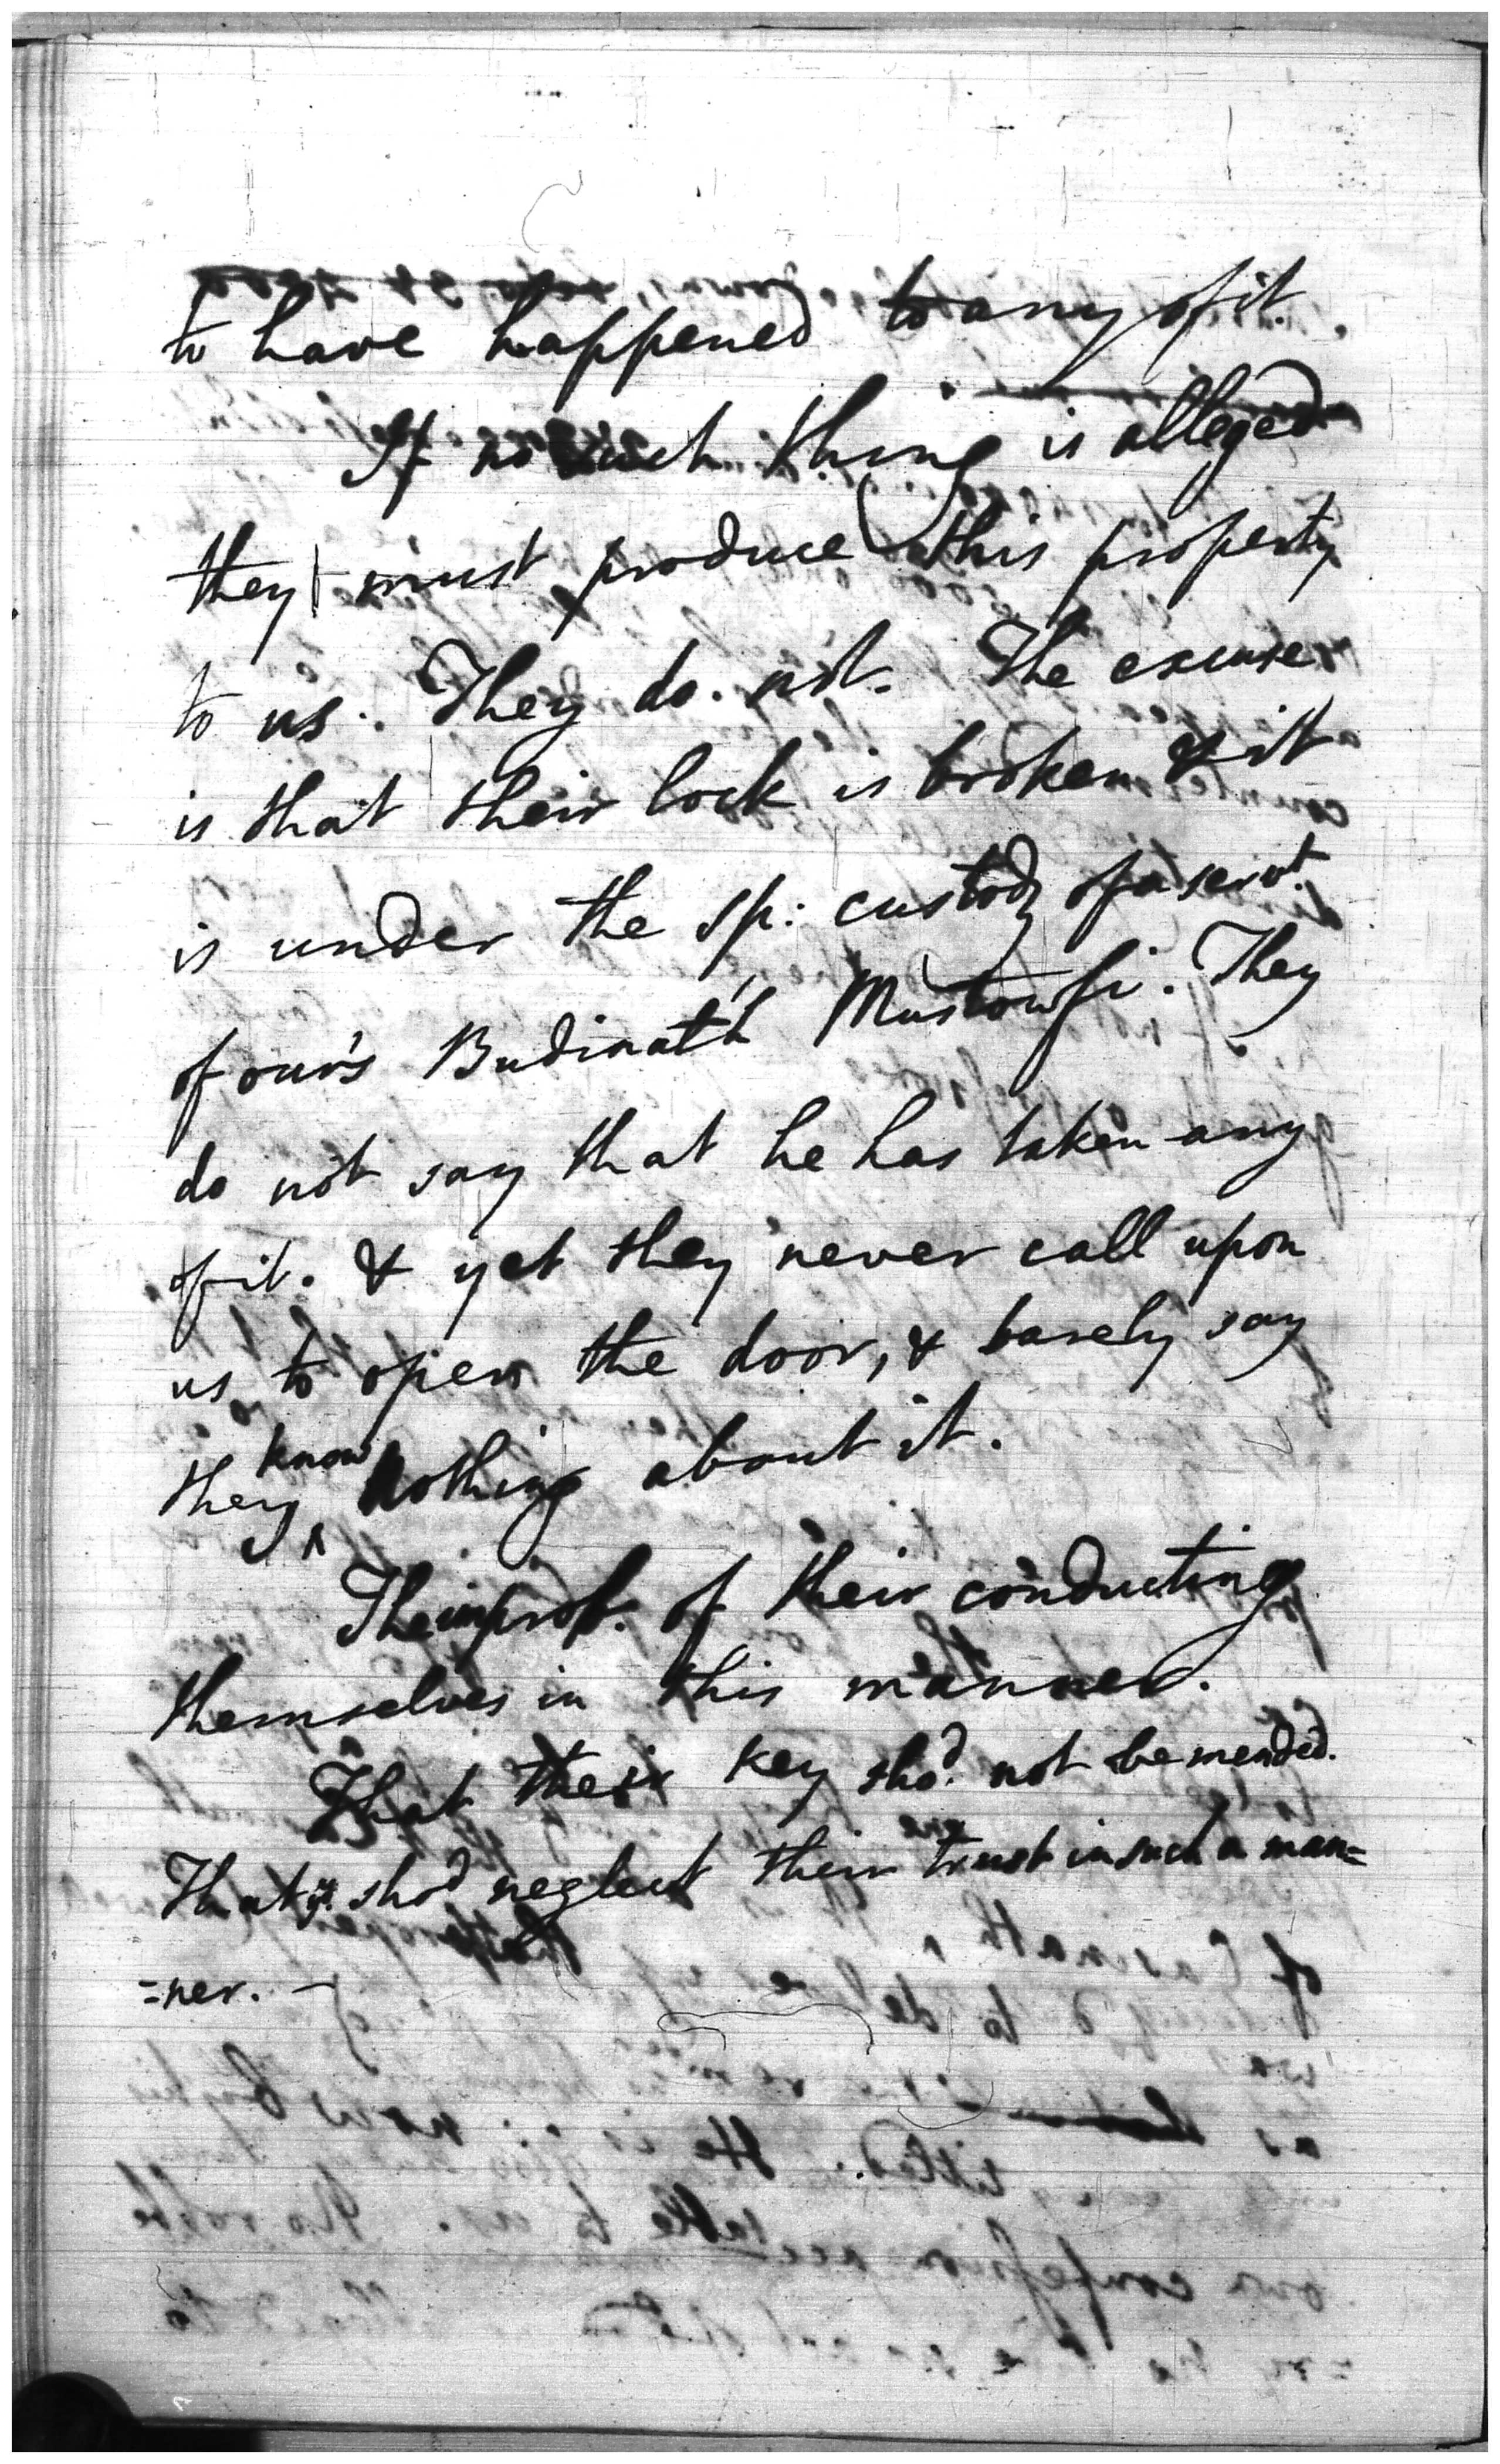 to have happened to any of it.
If no such thing is alleged
they must produce this property
to us. They do not. The excuse
is that their lock is broken & it
is under the sp: custody of a servt.
of our's Budinath Mustowfi. They
do not say that he has taken any
of it. & yet they never call upon
us to open the door, & barely say
they know nothing about it.
The improb. of their conducting
themselves in this manner.
That their key shod. not be mended.
That yy. shod neglect their trust in such a man=
=ner. —